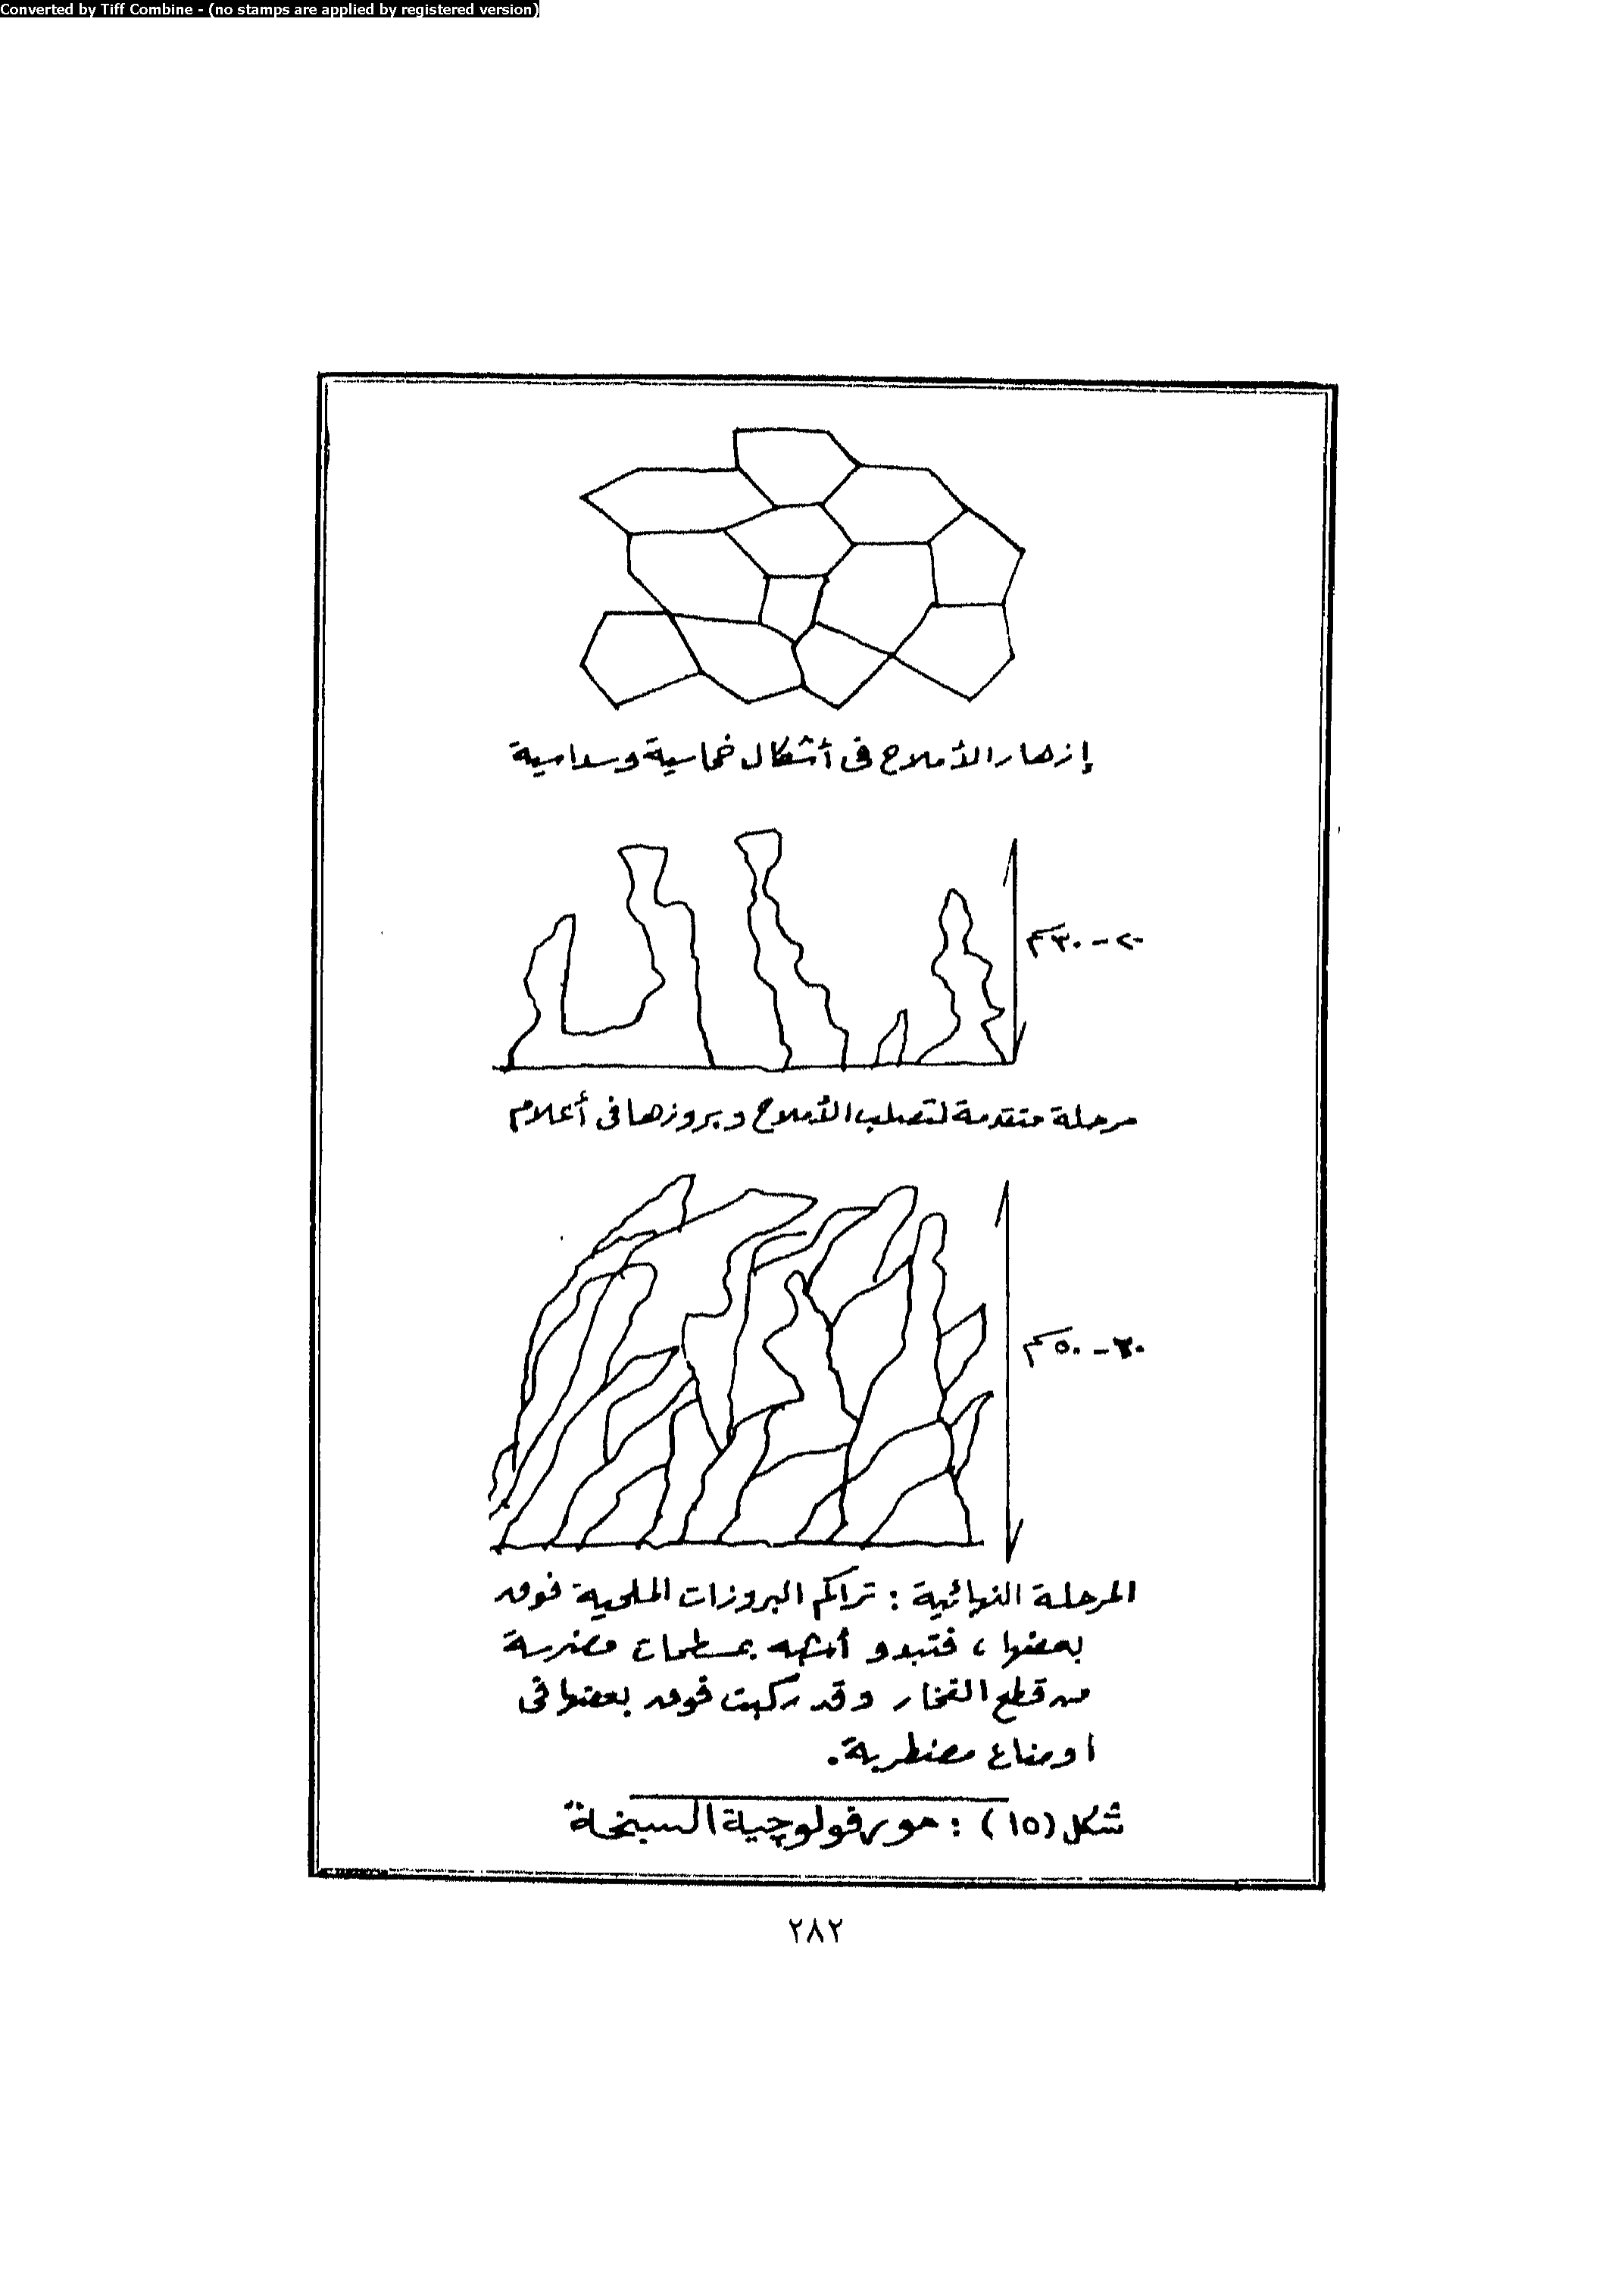 Converted by Tiff Combine - (no stamps are applied by registered version)
إزهار الأملاح فى أشكال خماسية وسداسية
٢٠ - ٣٠ سم
مرحلة متقدمة لتصلب الأملاح وبروزها فى أعلام
٣٠ - ٥٠ سم
المرحلة النهائية : تراكم البروزات الملحية فوق
بعضها ، فتبدو أشبه بمسطحات مضرسة
من قطع الفخار وقد ركبت فوق بعضها فى
اوضاع مضطربة.
شكل (١٥) : مورفولوچية السبخة
٢٨٢